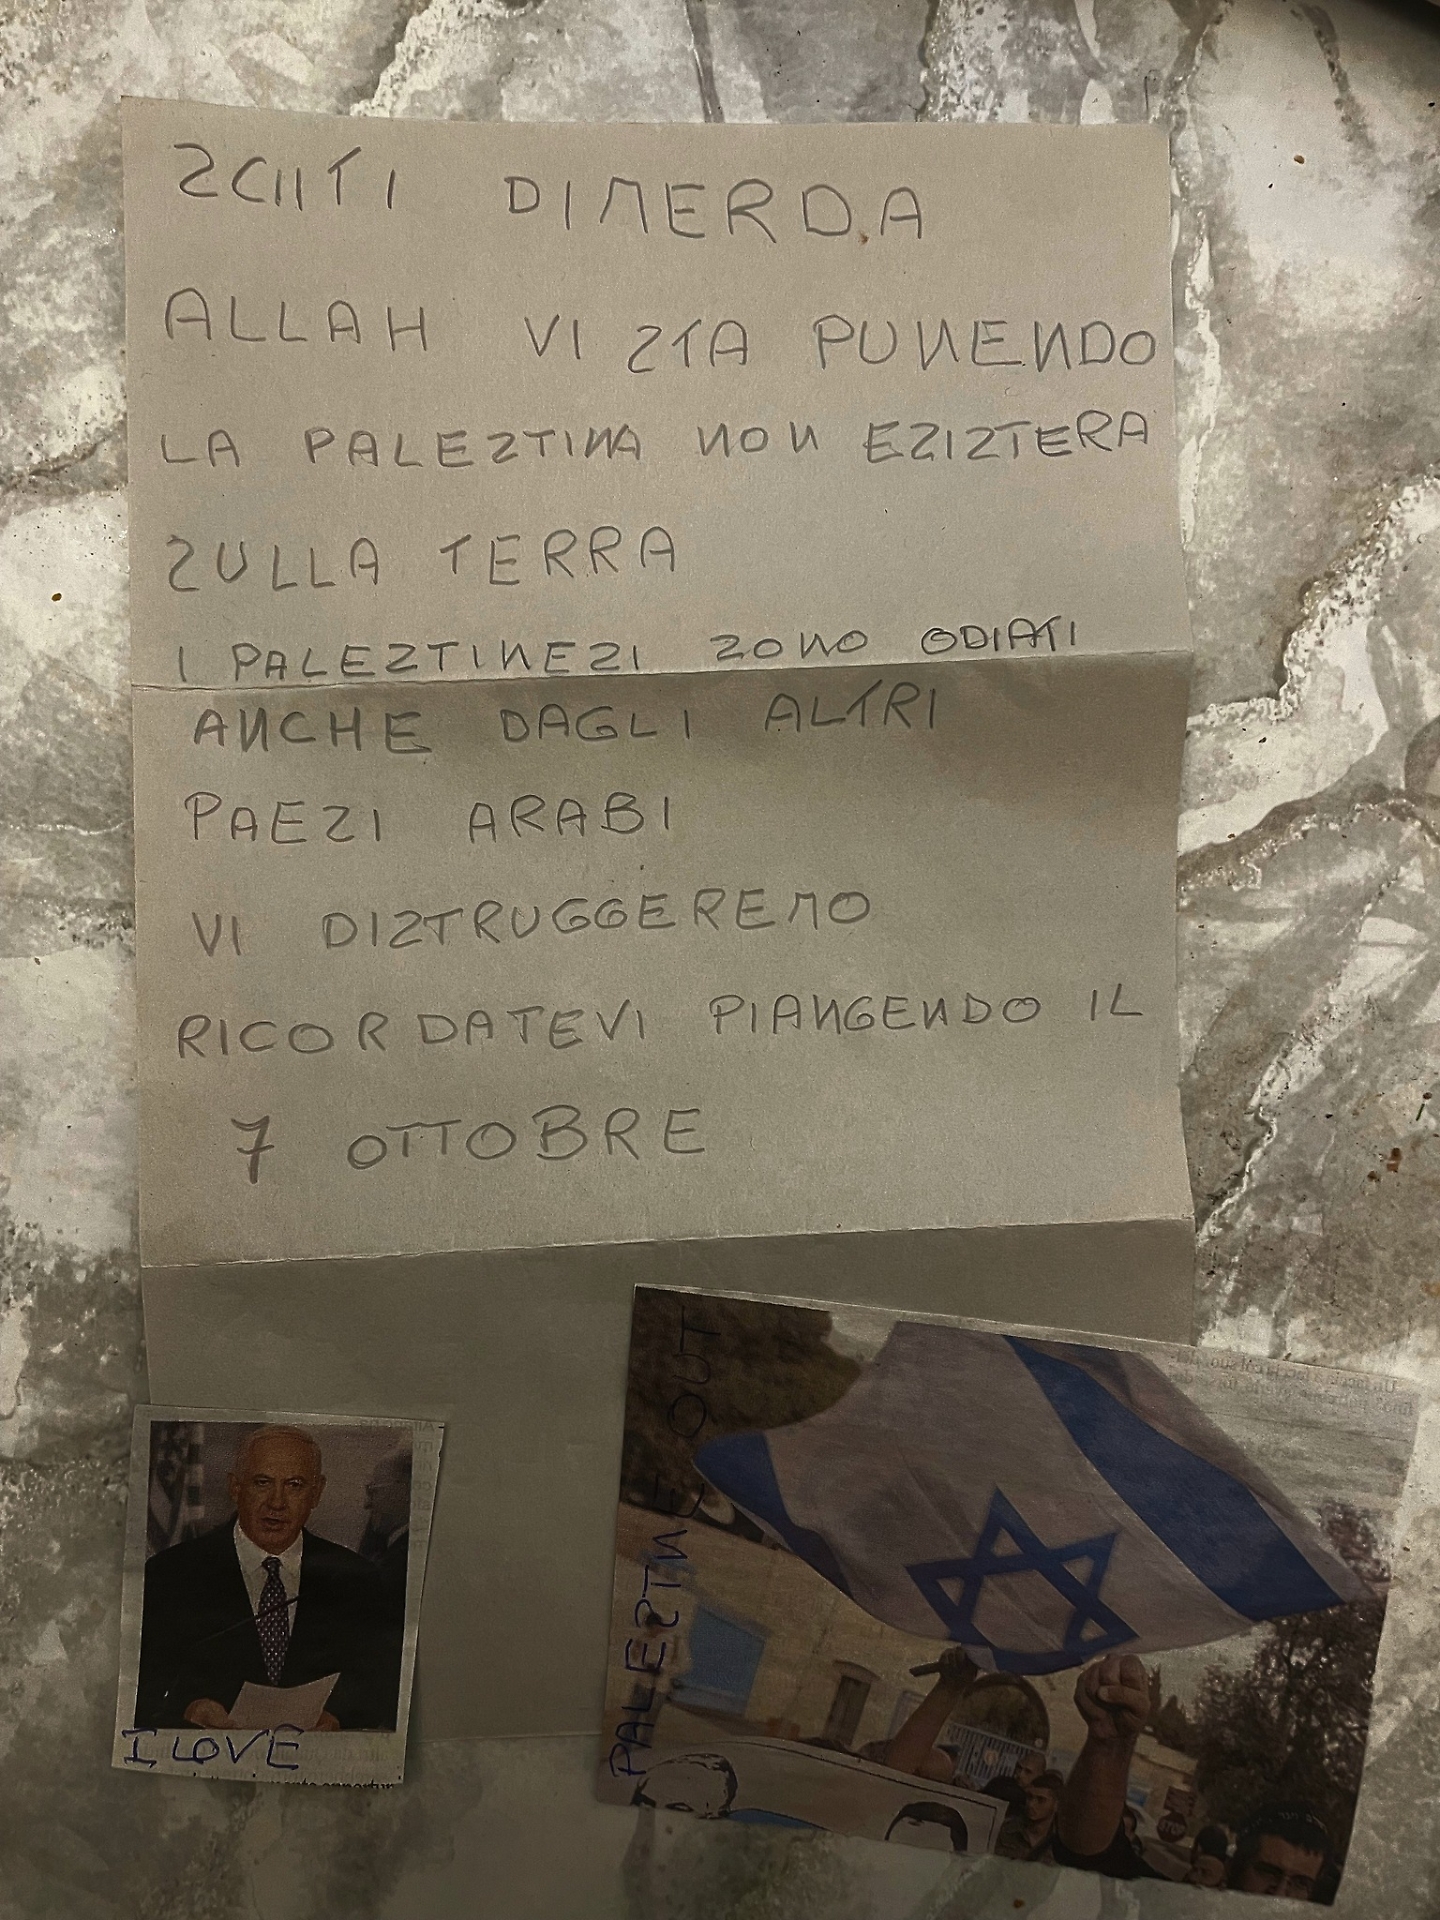 ZCIITI DI MERDA
ALLAH VI ZTA PUNENDO
LA PALEZTINA NON EZIZTERA
ZULLA TERRA
I PALEZTINEZI ZONO ODIATI
ANCHE DAGLI ALTRI
PAEZI ARABI
VI DIZTRUGGEREMO
RICORDATEVI PIANGENDO IL
7 OTTOBRE
I LOVE
PALEZTINE OUT
STOP